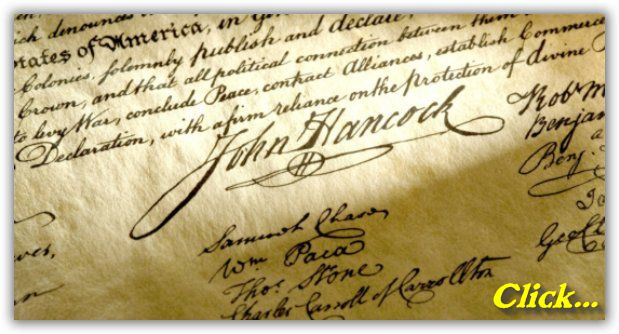 ich denounces
States of America, in
Colonies, solemnly publish and declare,
Crown, and that all political connection between them
to levy War, conclude Peace, contract Alliances, establish Commerce
Declaration, with a firm reliance on the protection of divine
John Hancock
Samuel Chase
Wm Paca
Thos. Stone
Charles Carroll of Carrollton
Rob
Benjam
Benj.
Click...